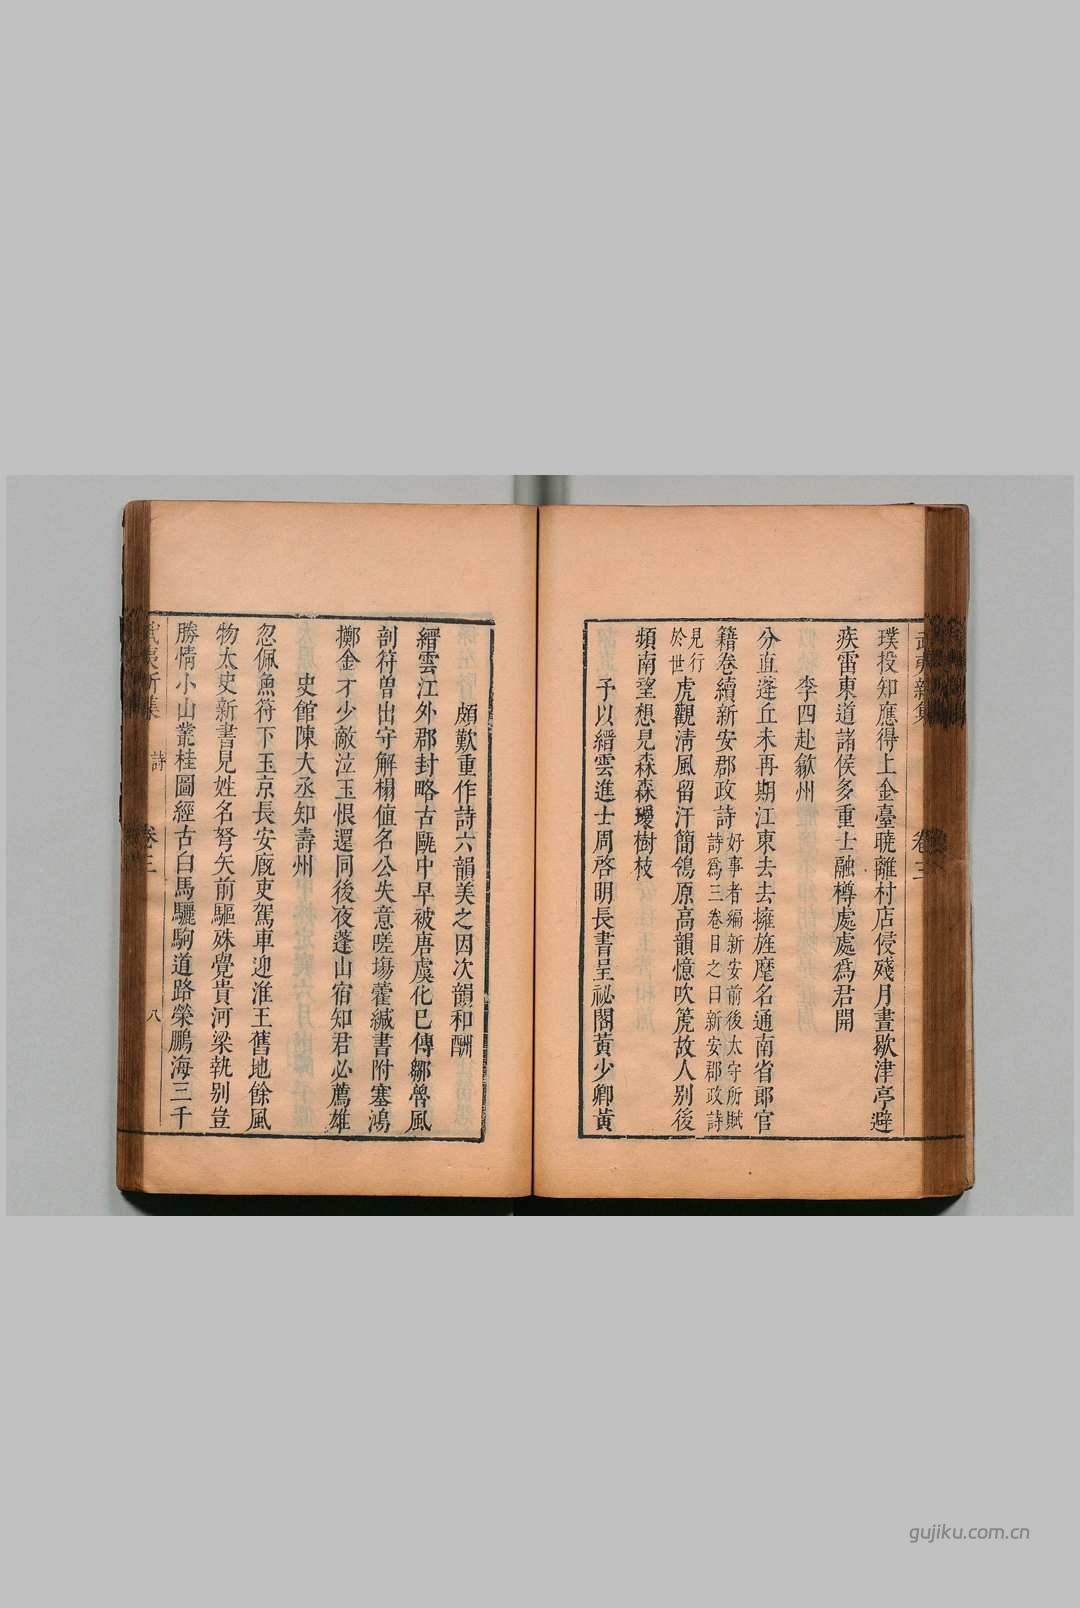 璞投知應得上金臺曉離村店侵殘月晝歇津亭避
疾雷東道諸侯多重士融樽處處爲君開
李四赴歙州
分直蓬丘未再期江東去去擁旌麾名通南省郎官
籍卷續新安郡政詩
好事者編新安前後太守所賦
詩爲三卷目之日新安郡政詩
見行
於世
虎觀清風留汗簡鴒原高韻憶吹箎故人别後
頻南望想見森森璦樹枝
予以縉雲進士周啓明長書呈祕閣黄少卿黄
頗歎重作詩六韻美之因次韻和酬
縉雲江外郡封略古甌中早被唐虞化巳傳鄒魯風
剖符曽出守解榻値名公失意嗟塲藿緘書附塞鴻
擲金才少敵泣玉恨還同後夜蓬山宿知君必薦雄
史館陳大丞知壽州
忽佩魚符下玉京長安廐吏駕車迎淮王舊地餘風
物太史新書見姓名弩矢前驅殊覺貴河梁執别豈
勝情小山叢桂圖經古白馬驪駒道路榮鵬海三千
武夷新集 詩 卷三 八